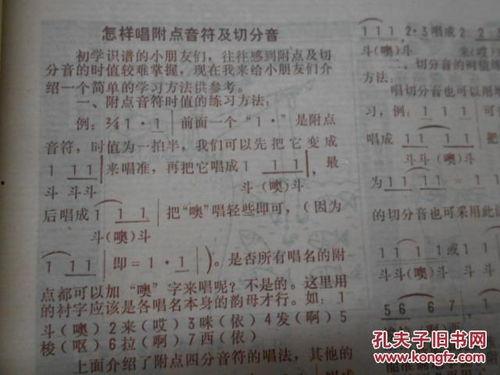 怎样唱附点音符及切分音
初学识谱的小朋友们，往往感到附点及切
分音的时值较难掌握，现在我来给小朋友们介
绍一个简单的学习方法供参考。
一、附点音符时值的练习方法：
例：2/4 1 · 1 | 前面一个“1 ·”是附点
音符，时值为一拍半，我们可以先把它变成
1 1 1 | 来唱准，再把它唱成 1 1 1 |，最
斗斗斗 斗(噢)斗
后唱成 1 1 1 | 把“噢”唱轻些即可，(因为
斗(噢)斗
1 1 1 | 即＝1 · 1 | )。是否所有唱名的附
点都可以加“噢”字来唱呢？不是的。这里用
的衬字应该是各唱名本身的韵母才行。如：1
斗(噢) 2来(哎) 3咪(依) 4发(啊) 5
梭(呕) 6拉(啊) 7西(依)
上面介绍了附点四分音符的唱法，其他的
1 1 1 2·3 唱成
斗(噢)斗
二、切分音的时值练
方法：
唱切分音也可以用
习，例：1 1 1
唱成 1 1 1 1
斗斗(噢)斗
为 1 1 1 1
的切分音也可采用此
1 1 1 或 1
斗斗(噢)
5 6 6 7
孔夫子旧书网
www.kongfz.com